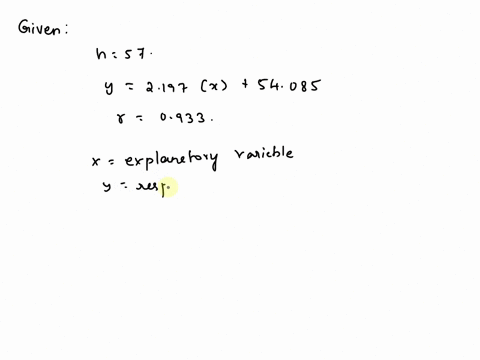 Given:
n = 57.
y = 2.197 (x) + 54.085
r = 0.933.
x = explanetory varieble
y = resp